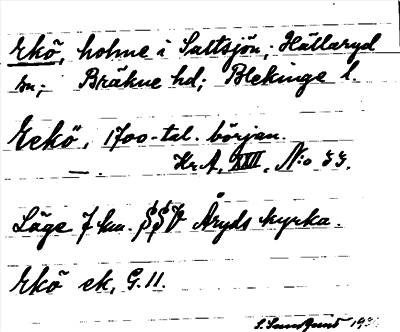 Ekö, holme i Saltsjön; Hällaryd
sn; Bräkne hd; Blekinge l.
Eekö, 1700-tal. början.
— . Kr.A. XXIII, N:o 33.
Läge 7 km. SSV Åryds kyrka.
Ekö ek, G.11.